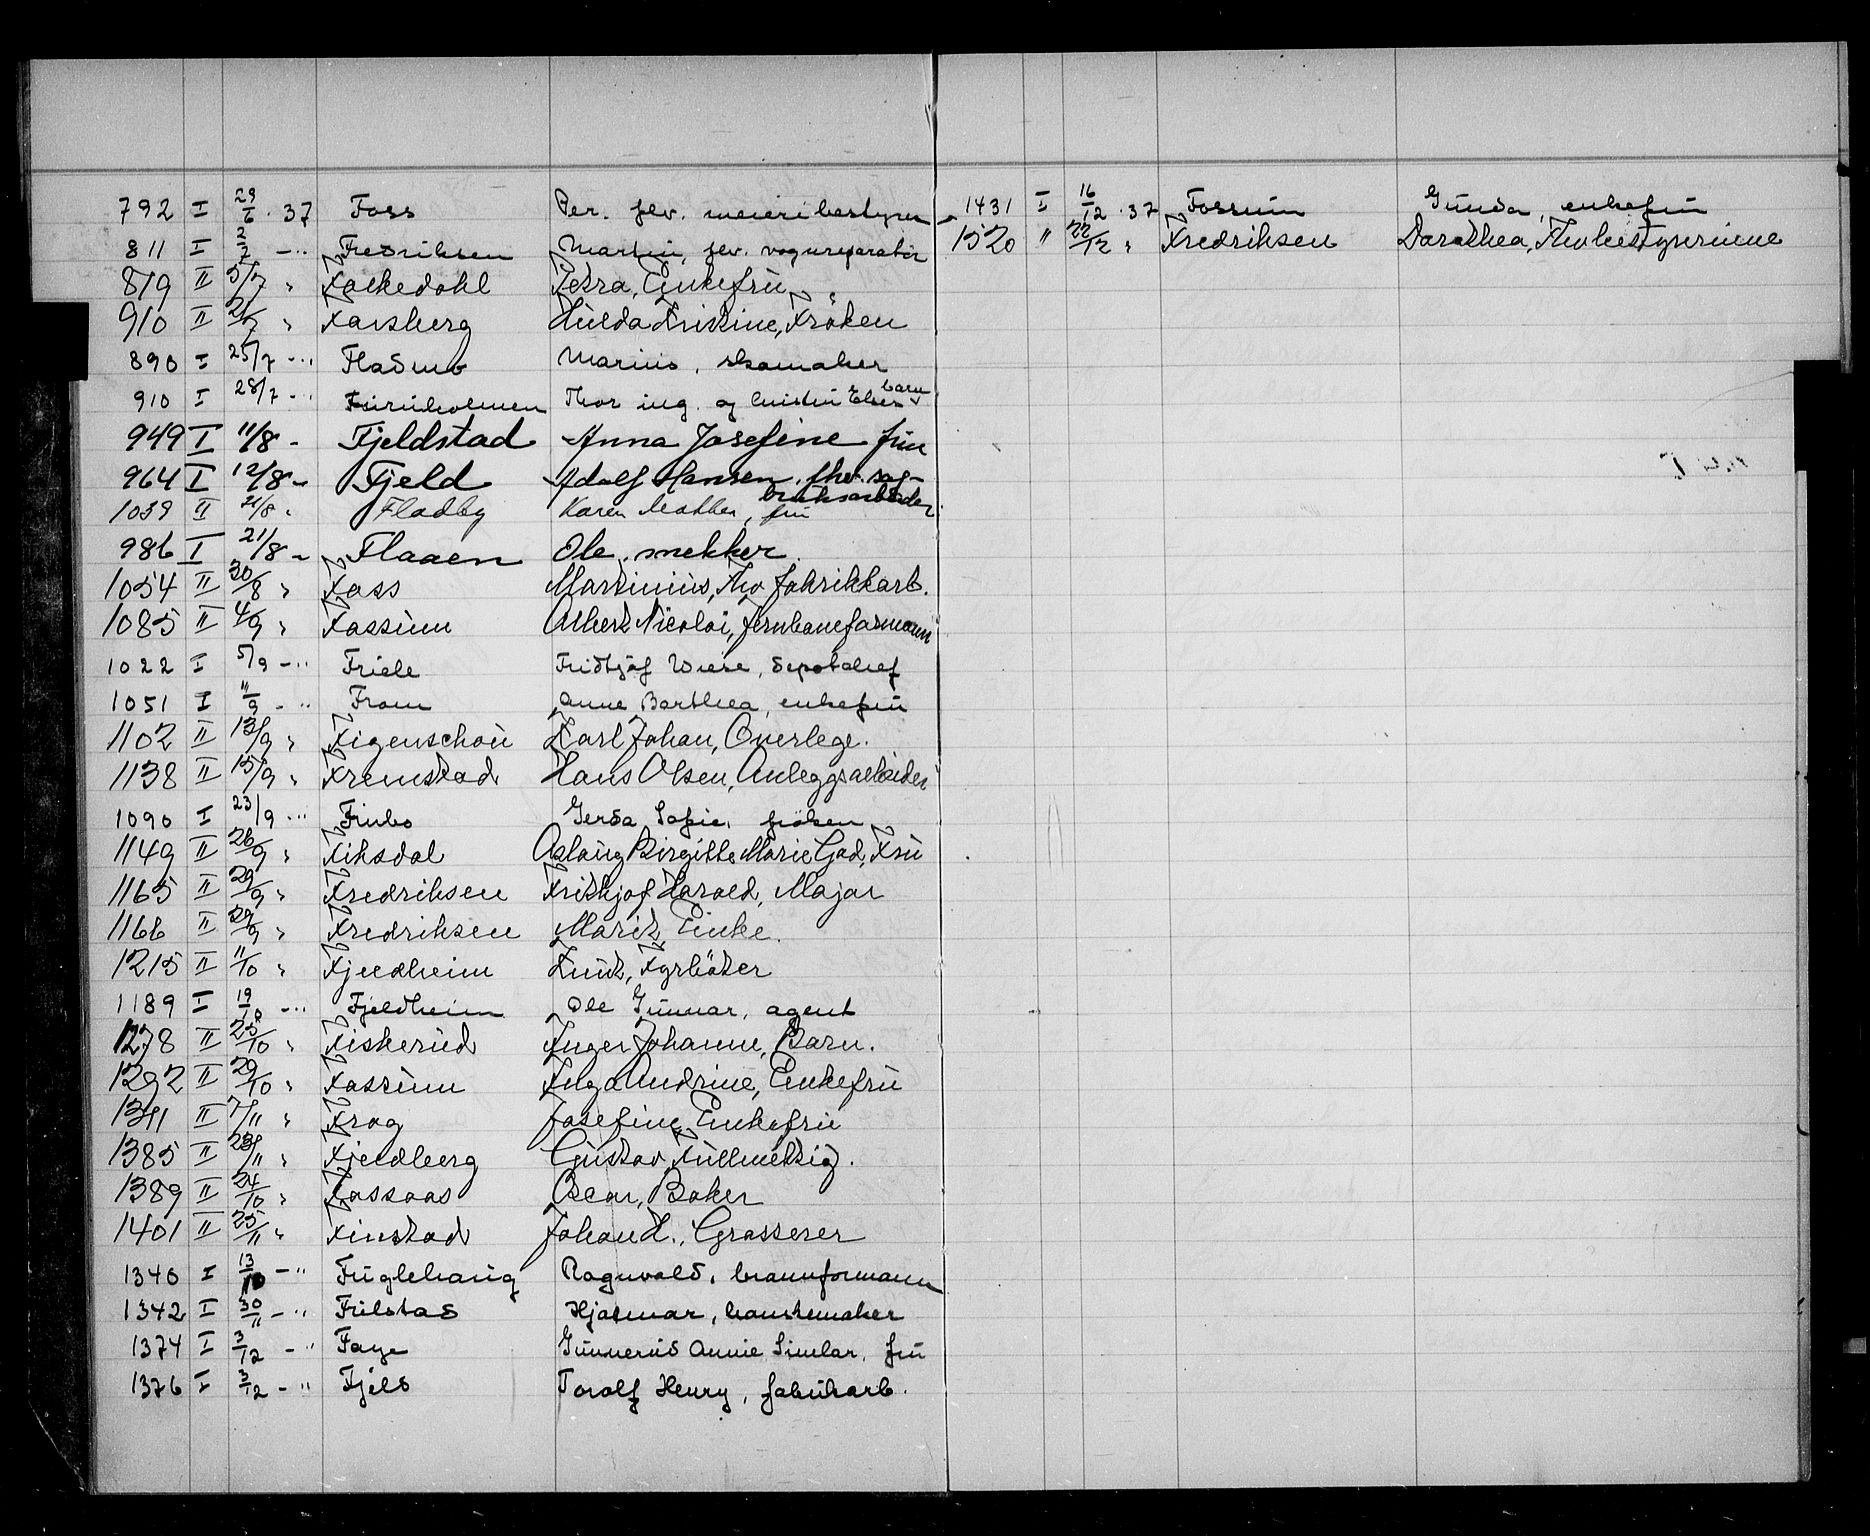 792 I 29/6 . 37 Foss Per. fhv. meieribestyrer
811 I 2/7 - " Fredriksen Martin, fhv. vognreparatör
819 II 5/7 " Falkedahl Petra, Enkefru
910 II 21/7 " Farsberg Hulda Kristine, Fröken
890 I 25/7 - " Fladmo Marius, skomaker
910 I 28/7 - " Furuholmen Thor ing. og Elses barn
949 I 11/8 - Fjeldstad Anna Josefine fru
964 I 12/8 - Fjeld Adolf Hansen, fhv. sag-
bruksarbeider
1039 II 21/8 " Fladby Karen Mathea, fru
986 I 21/8 - Flaaen Ole, snekker
1054 II 30/8 " Foss Martinius, Fhv fabrikkarb.
1085 II 4/9 " Fossum Albert Nicolai, Jernbaneformann
1022 I 5/9 - " Friele Fridtjof Wiese, depotchef
1051 I 11/9 - " From Anne Barthea, enkefru
1102 II 13/9 " Figenschou Karl Johan, Overlege.
1138 II 15/9 " Fremstad Hans Olsen, Anleggsarbeider
1090 I 23/9 - " Finbo Gerda Sofie, fröken
1149 II 26/9 " Fiksdal Aslaug Birgitte Marie Gad, Fru
1165 II 29/9 " Fredriksen Frithjof Harald, Major
1166 II 29/9 " Fredriksen Marit, Enke.
1215 II 11/10 " Fjeldheim Knut, Fyrböter
1189 I 19/10 - " Fjeldheim Ole Gunnar, agent
1278 II 25/10 " Fiskerud Inger Johanne, Barn.
1292 II 29/10 " Fossum Inga Andrine, Enkefru
1341 II 7/11 " Frog Josefine, Enkefru
1385 II 23/11 " Fjeldberg Gustav, Fullmektig.
1389 II 24/10 " Fossaas Oscar, Baker
1401 II 25/11 " Finstad Johan H., Grosserer
1340 I 13/10 - " Fuglehaug Ragnvald, brannformann
1342 I 30/11 - " Fulstad Hjalmar, hanskemaker
1374 I 3/12 - " Faye Annie Simlar, fru
1376 I 3/12 - " Fjeld Torolf Henry, fabrikarb.
1431 I 16/12 . 37 Fossum Gunda, enkefru
1520 " 22/12 " Fredriksen Dorothea, Fhv bestyrerinne